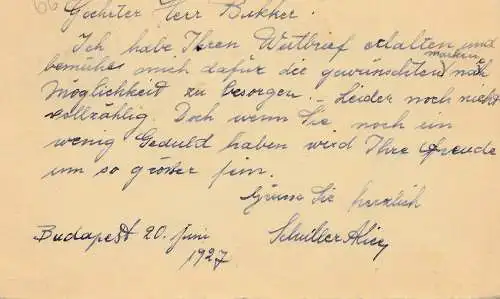 66
Geehrter Herr Bakker!
Ich habe Ihren Wertbrief erhalten und
bemühe mich dafür die gewünschten Marken nach
Möglichkeit zu besorgen. – Leider noch nicht
vollzählig. Doch wenn Sie noch ein
wenig Geduld haben wird Ihre Freude
um so größer sein.
Grüsse Sie herzlich
Budapest 20. Juni Schiller Alice
1927